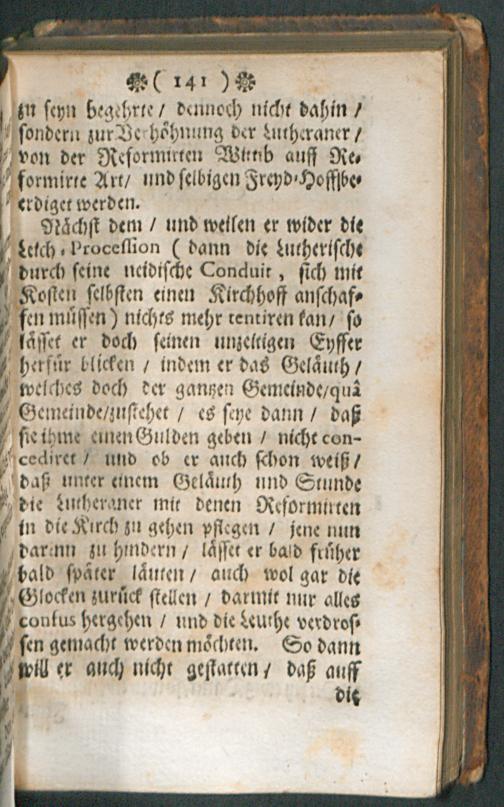 ❋( 141 )❋
zu seyn begehrte / dennoch nicht dahin /
sondern zur Verhöhnung der Lutheraner /
von der Reformirten Wittib auff Re-
formirte Art / und selbigen Freyd-Hoffsbe-
erdiget werden.
Nächst dem / und weilen er wider die
Leich-Procession ( dann die Lutherische
durch seine neidische Conduit, sich mit
Kosten selbsten einen Kirchhoff anschaf-
fen müssen ) nichts mehr tentiren kan / so
lässet er doch seinen unzeitigen Eyffer
herfür blicken / indem er das Geläuth /
welches doch der gantzen Gemeinde/quâ
Gemeinde/zustehet / es seye dann / daß
sie ihme einen Gulden geben / nicht con-
cediret / und ob er auch schon weiß /
daß unter einem Geläuth und Stunde
die Lutheraner mit denen Reformirten
in die Kirch zu gehen pflegen / jene nun
darinn zu hindern / lässet er bald früher
bald später läuten / auch wol gar die
Glocken zurück stellen / darmit nur alles
confus hergehen / und die Leuthe verdros-
sen gemacht werden möchten. So dann
will er auch nicht gestatten / daß auff
die